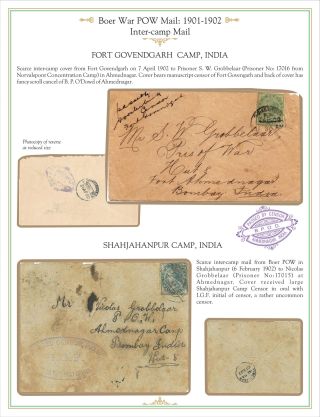 Boer War POW Mail: 1901-1902
Inter-camp Mail
FORT GOVENDGARH CAMP, INDIA
Scarce inter-camp cover from Fort Govendgarh on 7 April 1902 to Prisoner S. W. Grobbelaar (Prisoner No: 17016 from
Norvalspont Concentration Camp) in Ahmednagar. Cover bears manuscript censor of Fort Govengarh and back of cover has
fancy scroll cancel of B. P. O'Dowd of Ahmednagar.
Photocopy of reverse
at reduced size
Mr S. W. Grobbelaar
Pris of War
Hut
Fort Ahmednagar
Bombay India
SHAHJAHANPUR CAMP, INDIA
Scarce inter-camp mail from Boer POW in
Shahjahanpur (6 February 1902) to Nicolas
Grobbelaar (Prisoner No:17015) at
Ahmednagar. Cover received large
Shahjahanpur Camp Censor in oval with
I.G.F. initial of censor, a rather uncommon
censor.
Mr Nicolas Grobbelaar
P. O. W.
Ahmednagar Camp
Bombay India
Hut 8